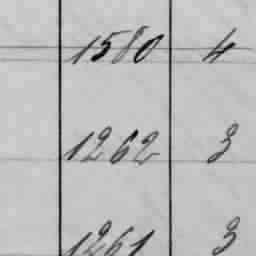 1580 4
1262 3
1261 3